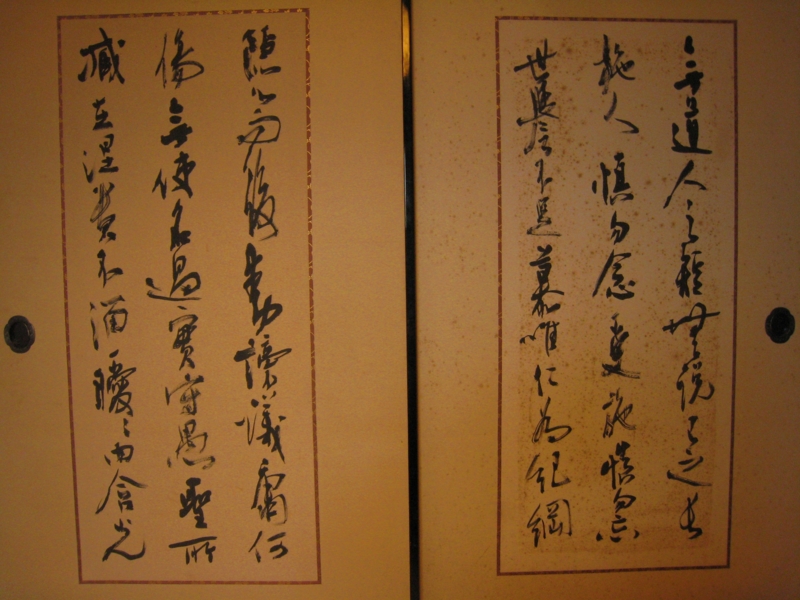 無道人之短無説己之長
施人慎勿念受施慎勿忘
世譽不足慕唯仁為紀綱
隠心而後動謗議庸何
傷無使名過實守愚聖所
臧在涅貴不淄曖々内含光